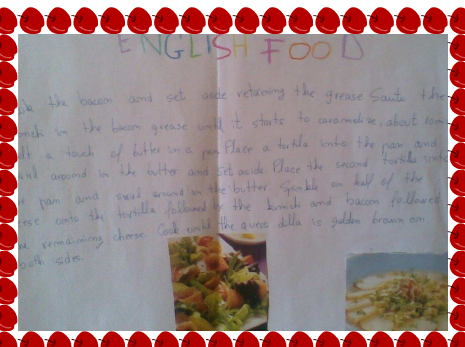 ENGLISH FOOD
the bacon and set aside returning the grease Sauté the
in the bacon grease until it starts to caramelize, about
a touch of butter in a pan Place a tortilla into the pan and
around in the butter and set aside. Place the second tortilla into
pan and swirl around in the butter. Sprinkle on half of the
onto the tortilla followed by the kimchi and bacon followed
remaining cheese. Cook until the quesadilla is golden brown on
both sides.